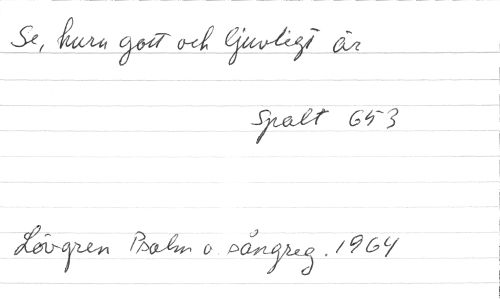 Se, huru gott och ljuvligt är
Spalt 653
Lövgren Psalm o. sångreg. 1964